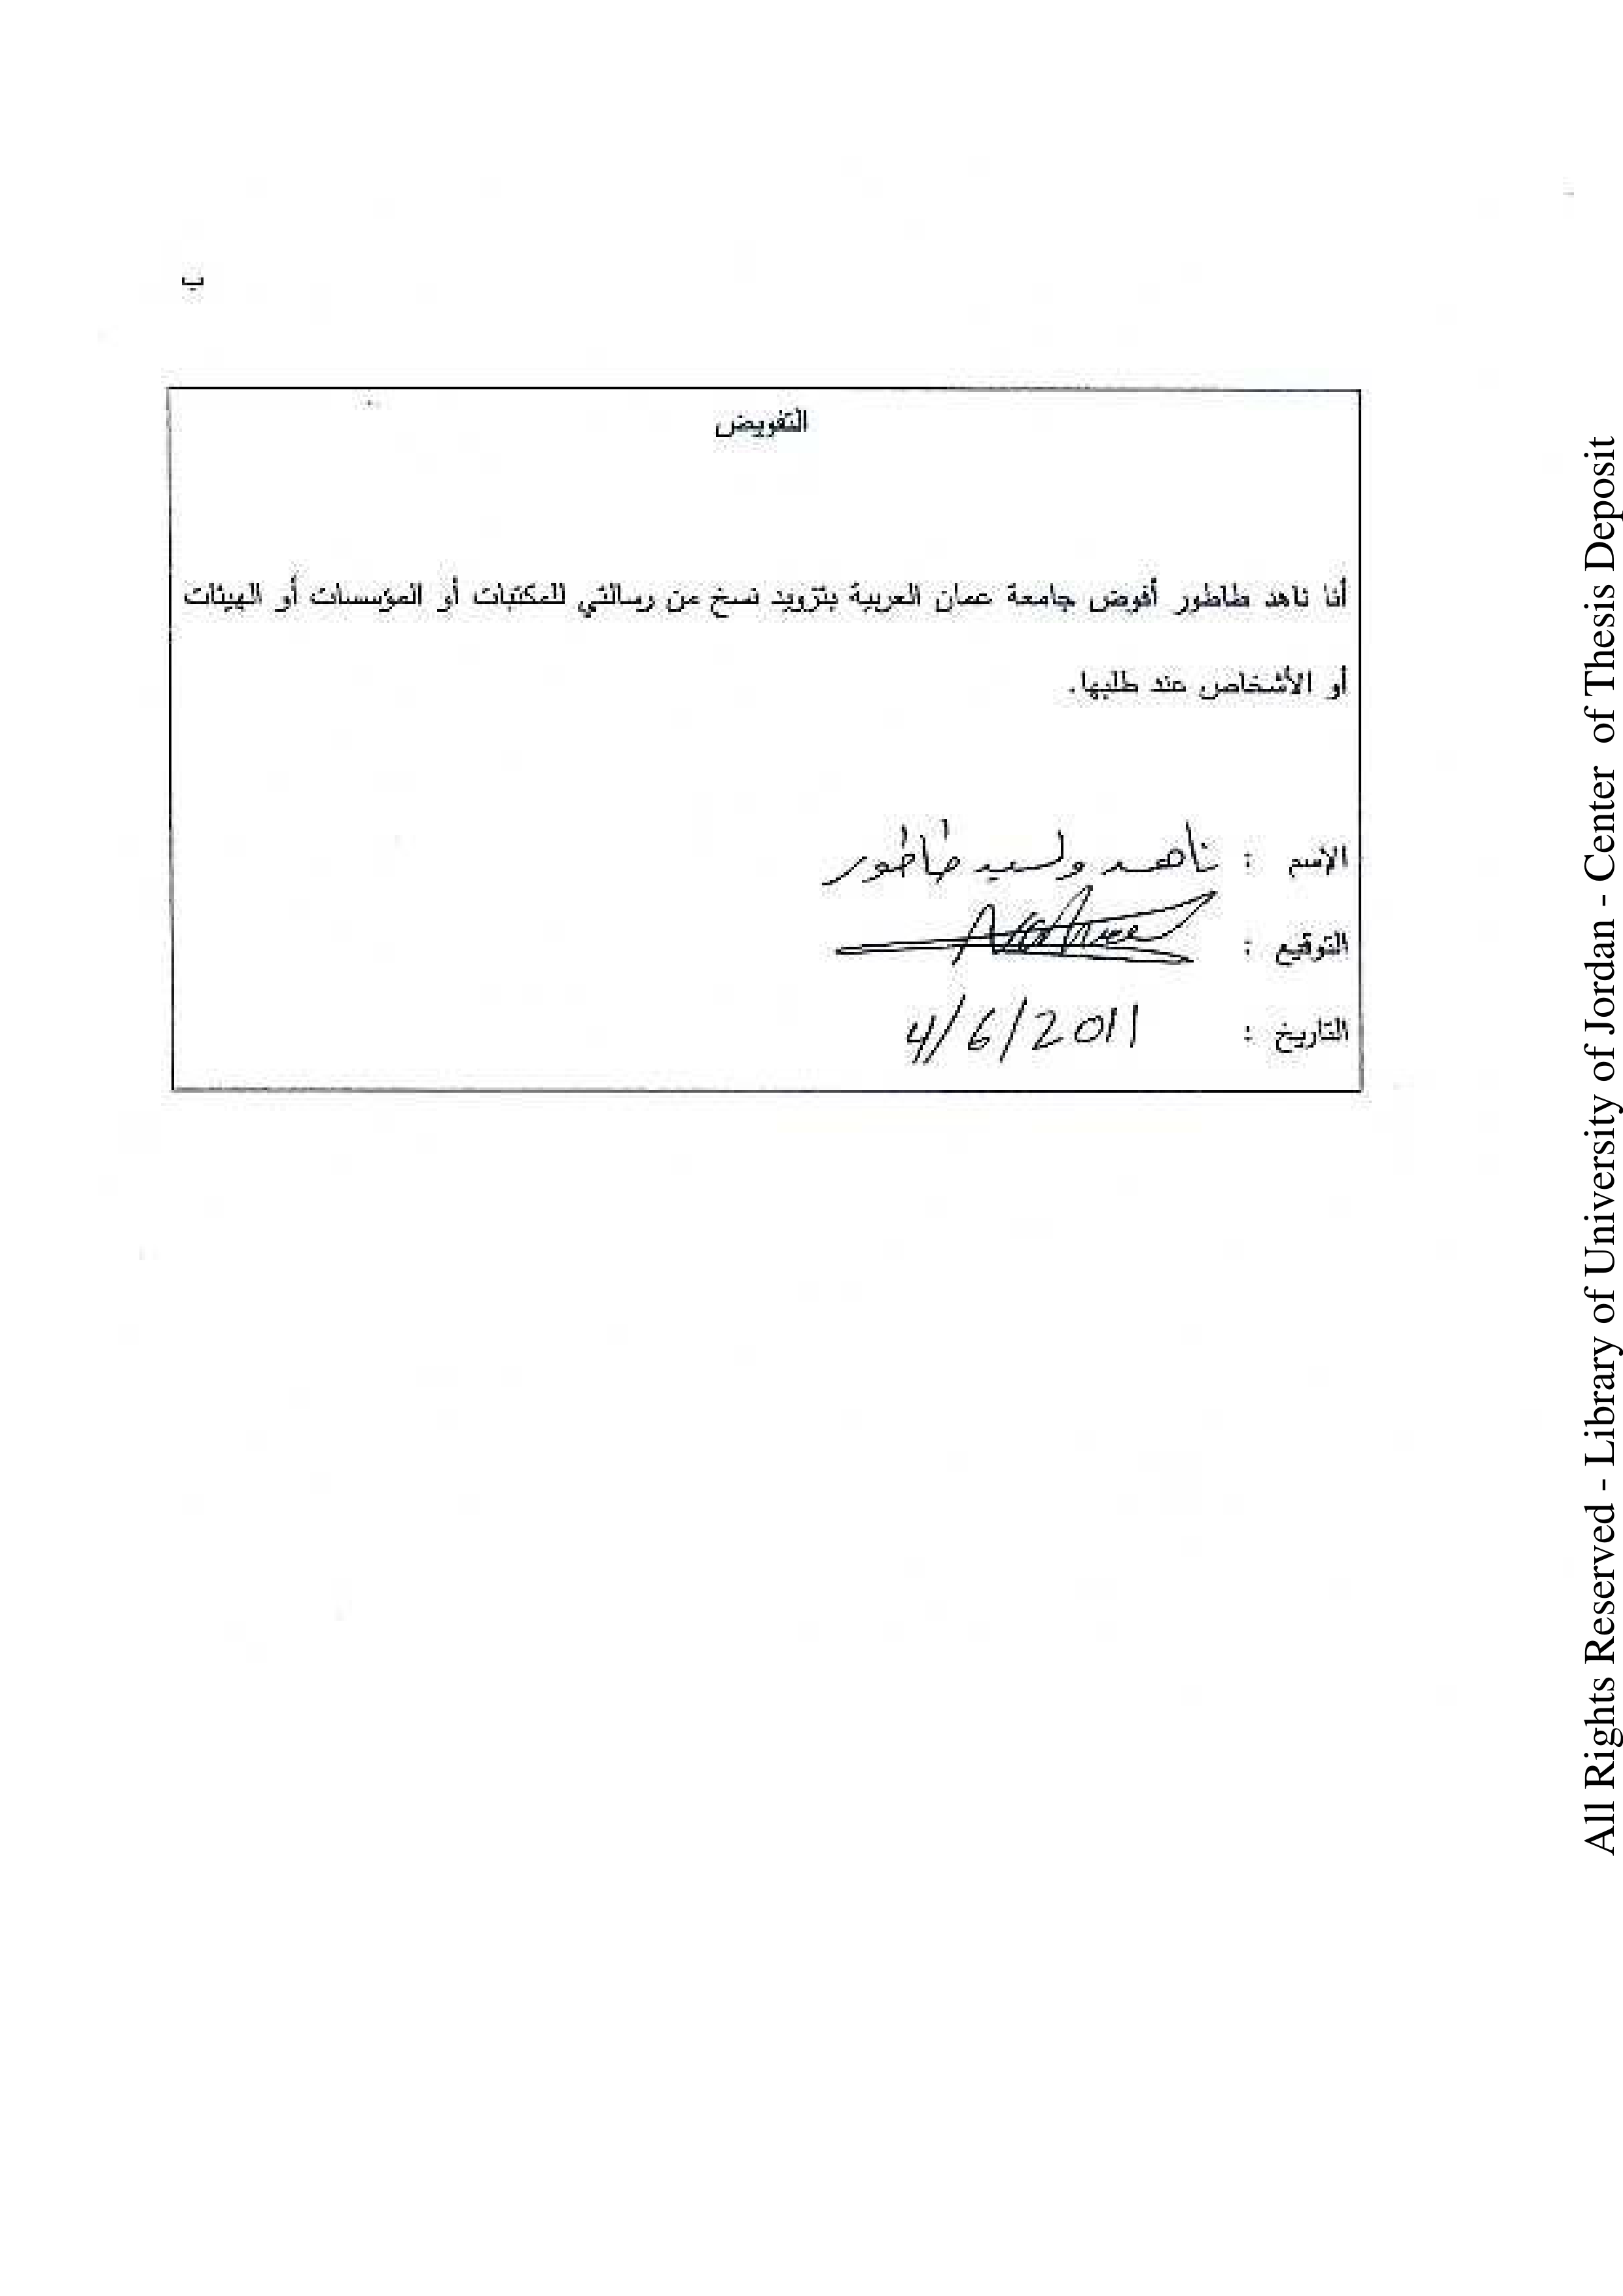 ب
التفويض
أنا ناهد طاطور أفوض جامعة عمان العربية بتزويد نسخ من رسالتي للمكتبات أو المؤسسات أو الهيئات
أو الأشخاص عند طلبها.
الإسم : ناهد وليد طاطور
التوقيع :
التاريخ : 4/6/2011
All Rights Reserved - Library of University of Jordan - Center of Thesis Deposit